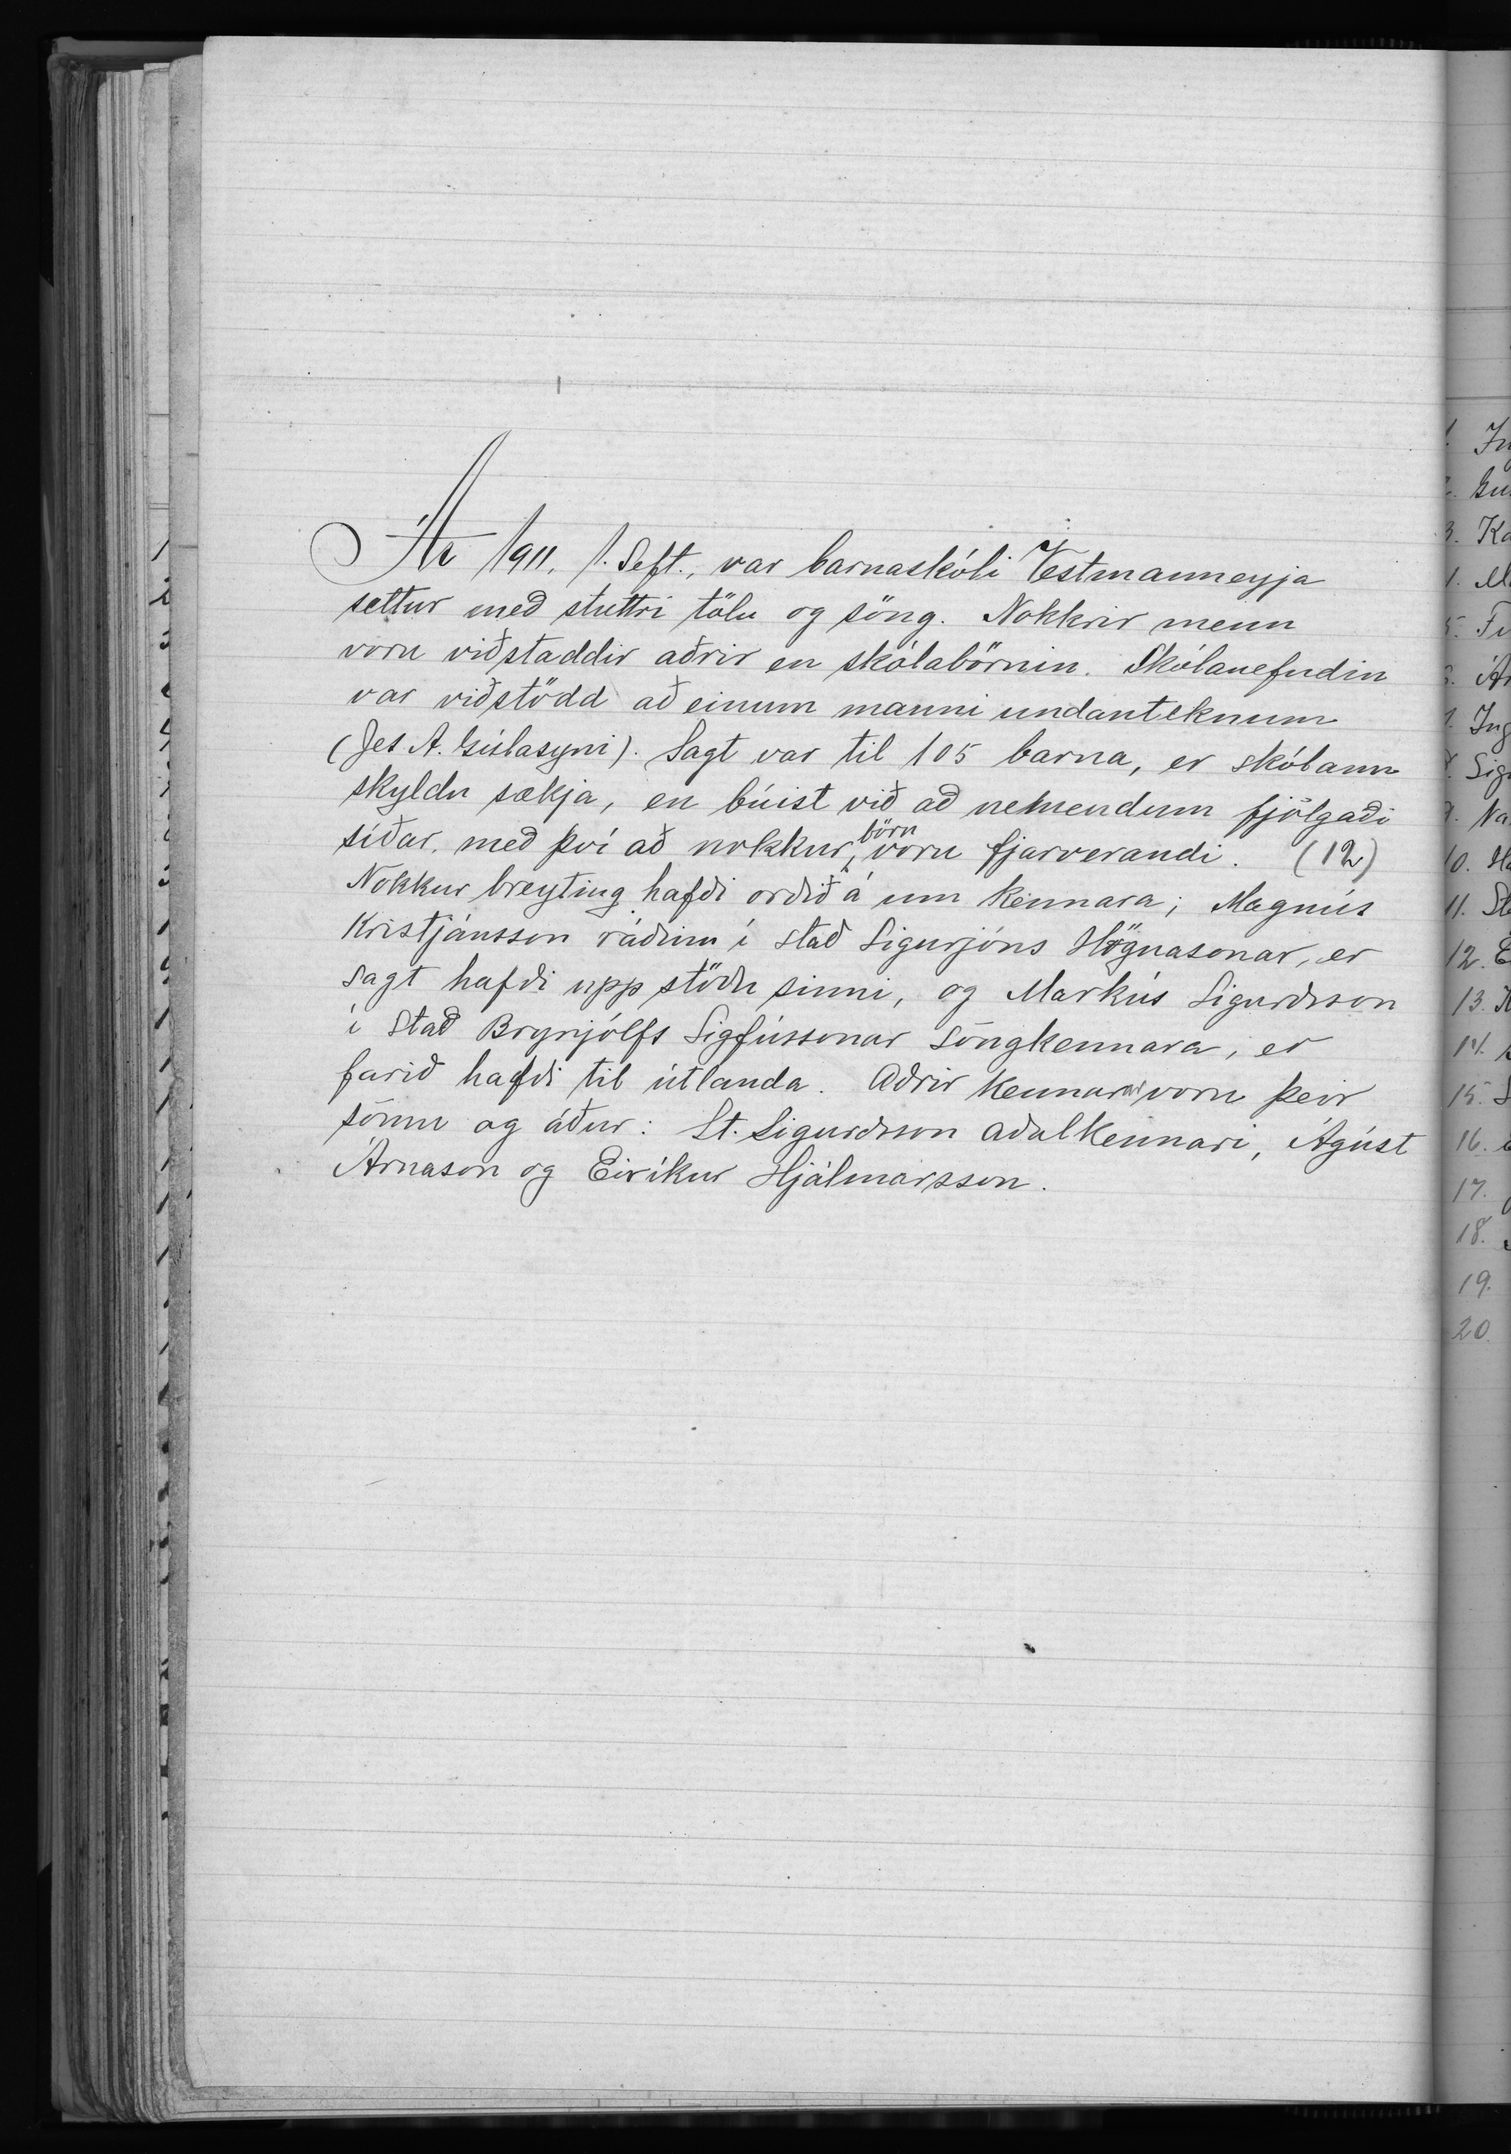 Ár 1911, 1. Sept., var barnaskóli Vestmanneyja
settur með stuttri tölu og söng. Nokkrir menn
voru viðstaddir aðrir en skólabörnin. Skólanefndin
var viðstödd að einum manni undanteknum
(Jes A. Gíslasyni). Sagt var til 105 barna, er skólann
skyldu sækja, en búist við að nemendum fjölgaði
síðar, með því að nokkur börn voru fjarverandi. (12)
Nokkur breyting hafði orðið á um kennara; Magnús
Kristjánsson ráðinn í stað Sigurjóns Högnasonar, er
sagt hafði upp stöðu sinni, og Markús Sigurðsson
í stað Brynjólfs Sigfússonar söngkennara, er
farið hafði til útlanda. Aðrir kennarar voru þeir
sömu og áður: St. Sigurðsson aðalkennari, Ágúst
Árnason og Eiríkur Hjálmarsson.
1
2
3
10.
11.
12.
13.
14.
15.
16.
17.
18.
19.
20.